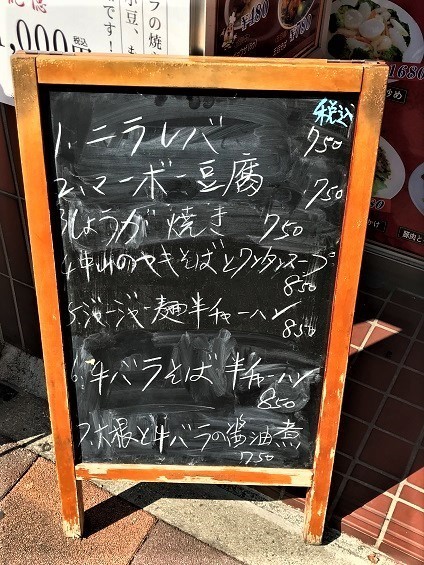 1,000円税込
ラの焼
小豆、も
です!
480
780
1680
税込
1. ニラレバ 750
2. マーボー豆腐 750
3. しょうが焼き 750
のヤキそばとワンタンスープ 850
5. ジャージャー麺半チャーハン 850
6. 牛バラそば 半チャーハン 850
7. 大根と牛バラの醤油煮 750